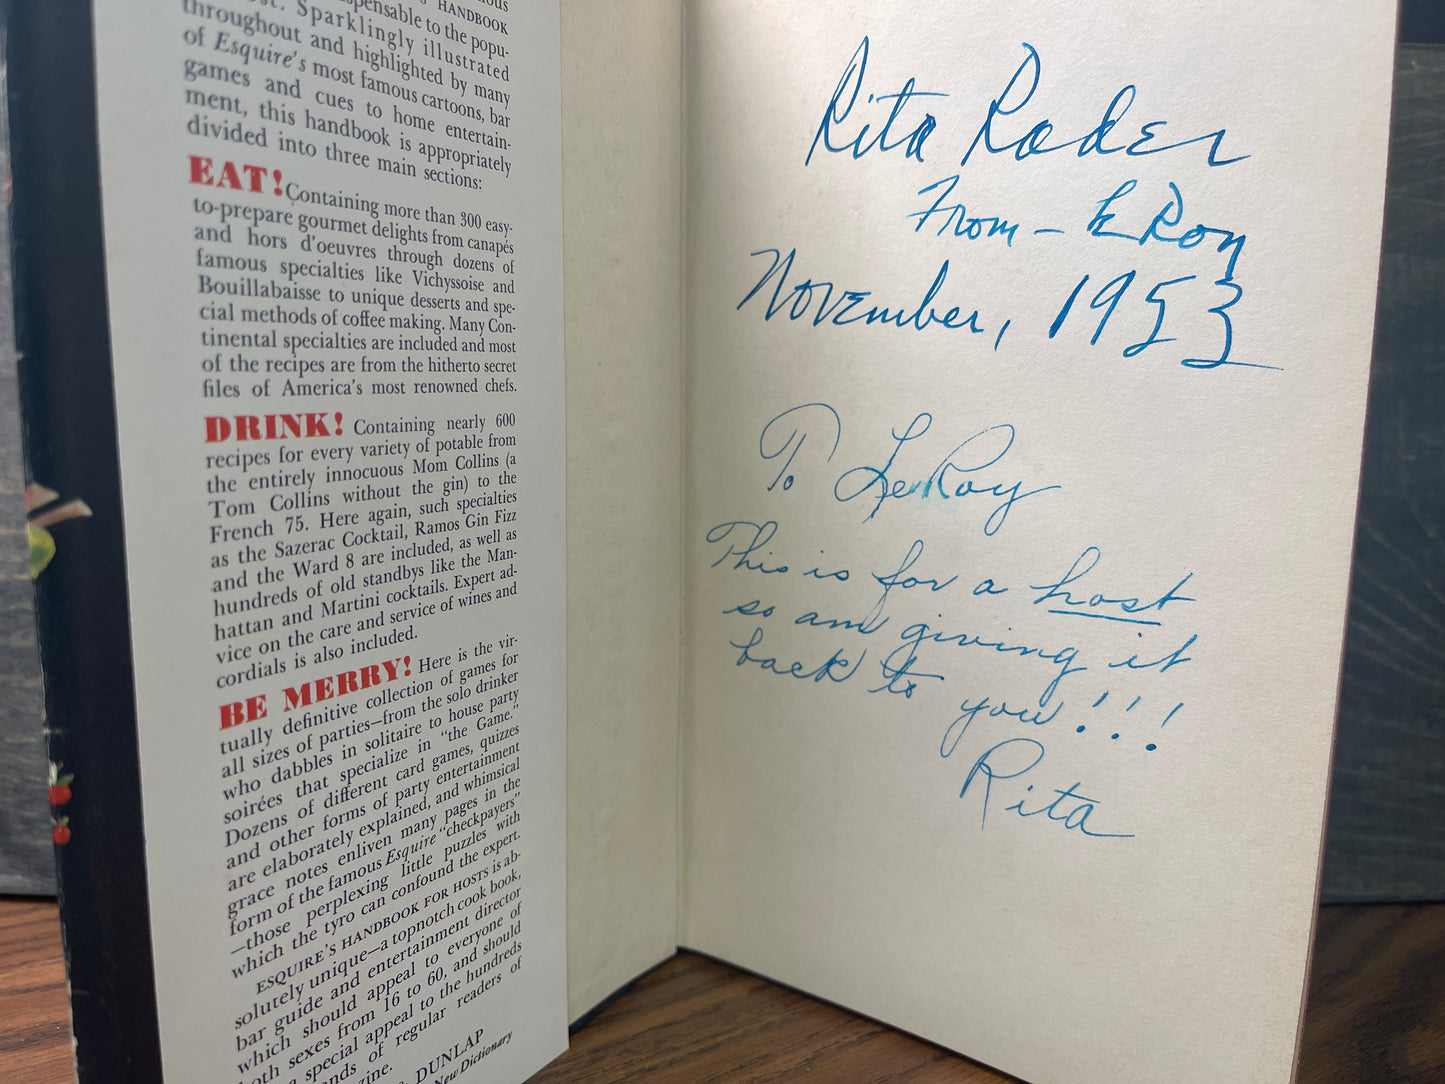 HANDBOOK
dispensable to the popu-
Sparklingly illustrated
throughout and highlighted by many
of Esquire's most famous cartoons, bar
games and cues to home entertain-
ment, this handbook is appropriately
divided into three main sections:
EAT! Containing more than 300 easy-
to-prepare gourmet delights from canapés
and hors d'oeuvres through dozens of
famous specialties like Vichyssoise and
Bouillabaisse to unique desserts and spe-
cial methods of coffee making. Many Con-
tinental specialties are included and most
of the recipes are from the hitherto secret
files of America's most renowned chefs.
DRINK! Containing nearly 600
recipes for every variety of potable from
the entirely innocuous Mom Collins (a
Tom Collins without the gin) to the
French 75. Here again, such specialties
as the Sazerac Cocktail, Ramos Gin Fizz
and the Ward 8 are included, as well as
hundreds of old standbys like the Man-
hattan and Martini cocktails. Expert ad-
vice on the care and service of wines and
cordials is also included.
BE MERRY! Here is the vir-
tually definitive collection of games for
all sizes of parties—from the solo drinker
who dabbles in solitaire to house party
soirées that specialize in "the Game."
Dozens of different card games, quizzes
and other forms of party entertainment
are elaborately explained, and whimsical
grace notes enliven many pages in the
form of the famous Esquire "checkpayers"
—those perplexing little puzzles with
which the tyro can confound the expert.
ESQUIRE'S HANDBOOK FOR HOSTS is ab-
solutely unique—a topnotch cook book,
bar guide and entertainment director
which should appeal to everyone of
both sexes from 16 to 60, and should
special appeal to the hundreds
of regular readers of
DUNLAP
New Dictionary
Rita Roder
From –
November, 1953
To LeRoy
This is for a host
so am giving it
back to you!!!
Rita